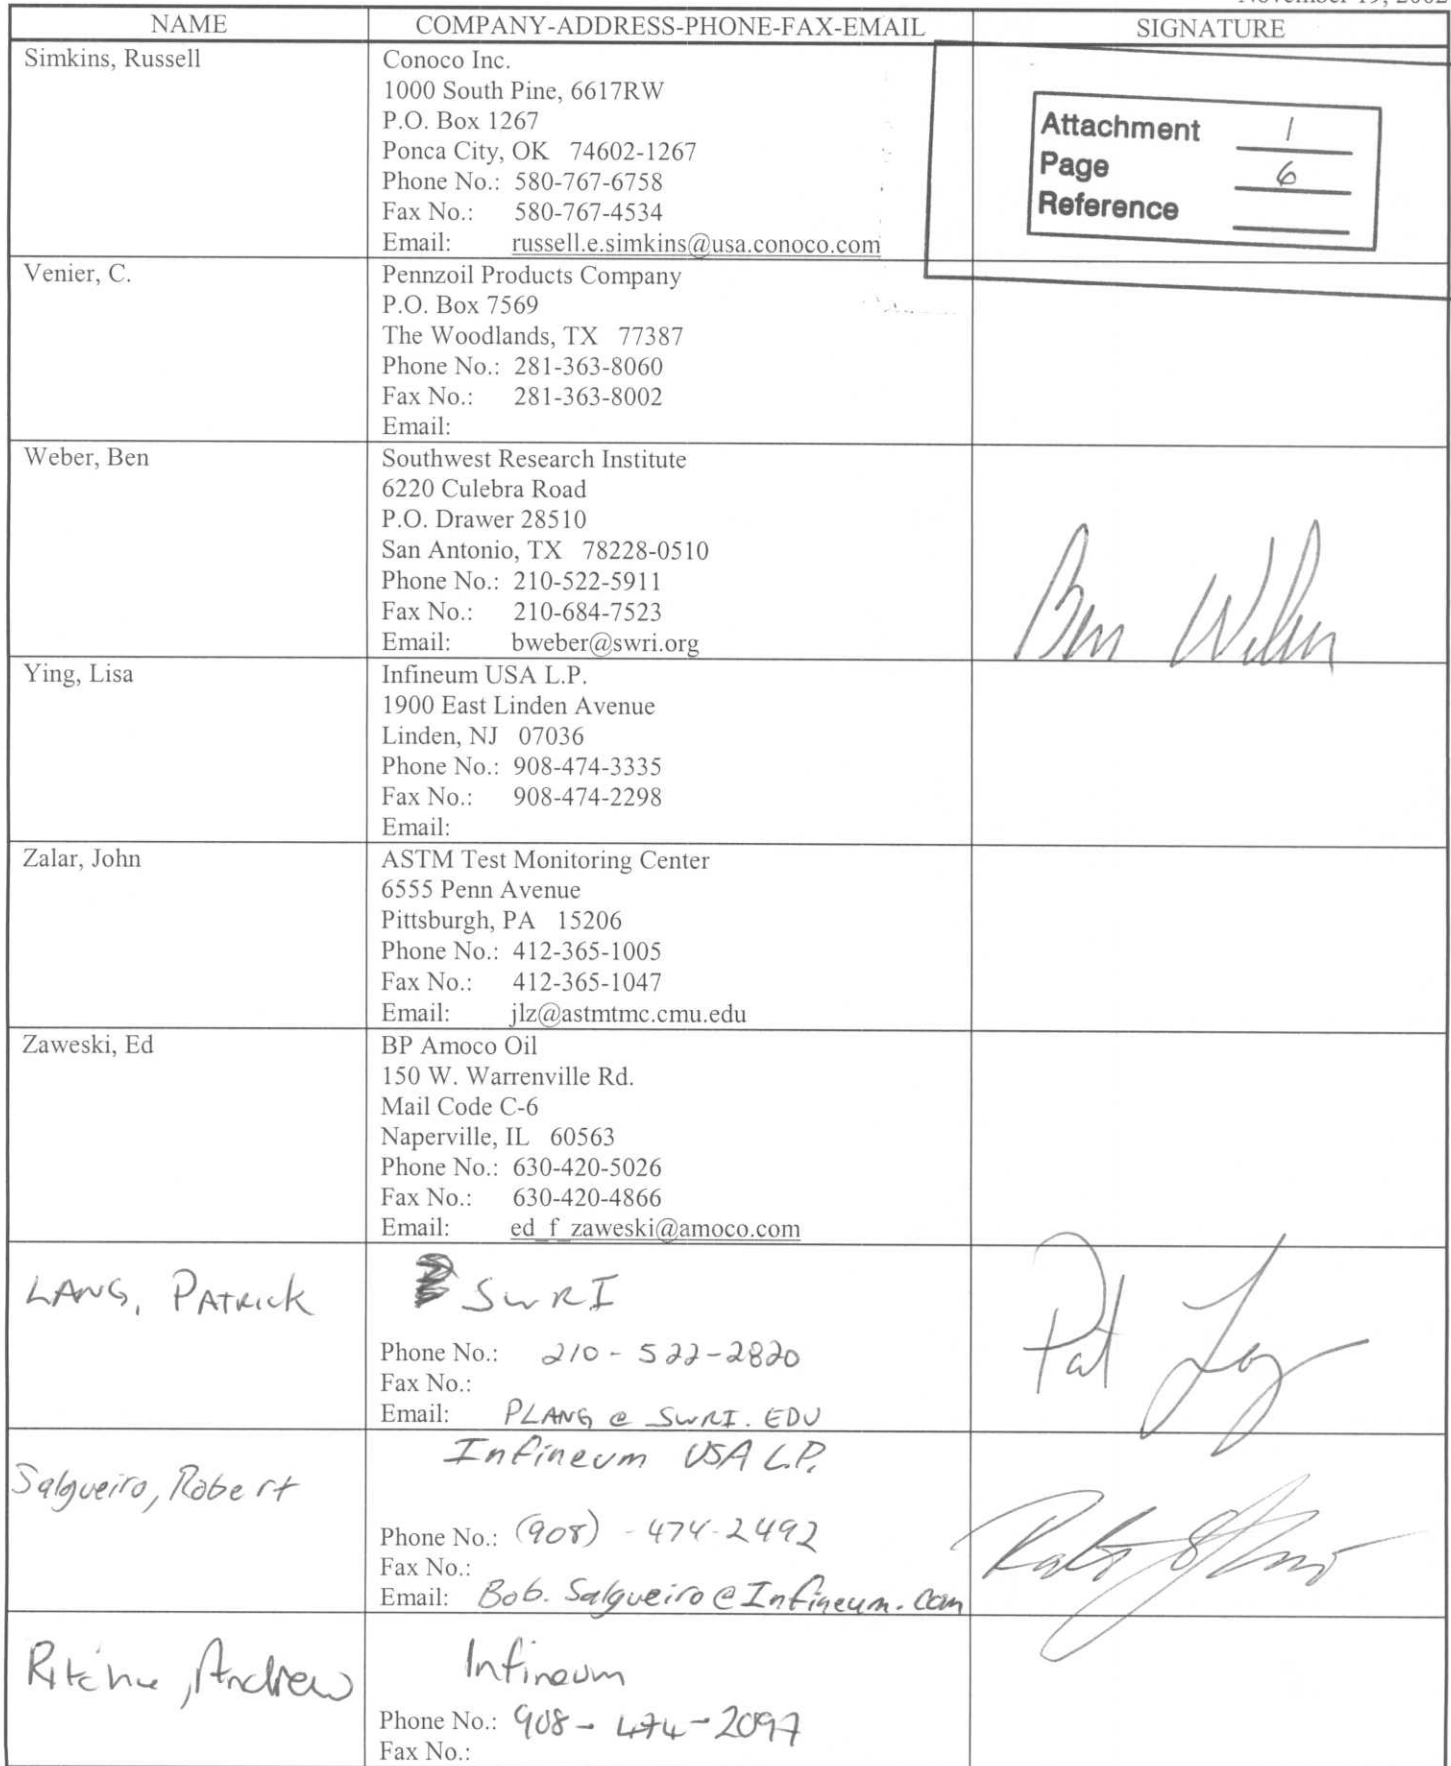 November 19, 2002
NAME
COMPANY-ADDRESS-PHONE-FAX-EMAIL
SIGNATURE
Simkins, Russell
Conoco Inc.
1000 South Pine, 6617RW
P.O. Box 1267
Ponca City, OK 74602-1267
Phone No.: 580-767-6758
Fax No.: 580-767-4534
Email: russell.e.simkins@usa.conoco.com
Attachment 1
Page 6
Reference
Venier, C.
Pennzoil Products Company
P.O. Box 7569
The Woodlands, TX 77387
Phone No.: 281-363-8060
Fax No.: 281-363-8002
Email:
Weber, Ben
Southwest Research Institute
6220 Culebra Road
P.O. Drawer 28510
San Antonio, TX 78228-0510
Phone No.: 210-522-5911
Fax No.: 210-684-7523
Email: bweber@swri.org
Ben Weber
Ying, Lisa
Infineum USA L.P.
1900 East Linden Avenue
Linden, NJ 07036
Phone No.: 908-474-3335
Fax No.: 908-474-2298
Email:
Zalar, John
ASTM Test Monitoring Center
6555 Penn Avenue
Pittsburgh, PA 15206
Phone No.: 412-365-1005
Fax No.: 412-365-1047
Email: jlz@astmtmc.cmu.edu
Zaweski, Ed
BP Amoco Oil
150 W. Warrenville Rd.
Mail Code C-6
Naperville, IL 60563
Phone No.: 630-420-5026
Fax No.: 630-420-4866
Email: ed_f_zaweski@amoco.com
LANG, PATRICK
SwRI
Phone No.: 210-522-2820
Fax No.:
Email: PLANG@SWRI.EDU
Pat Lang
Salgueiro, Robert
Infineum USA L.P.
Phone No.: (908)-474-2492
Fax No.:
Email: Bob.Salgueiro@Infineum.com
Ritchie, Andrew
Infineum
Phone No.: 908-474-2097
Fax No.: